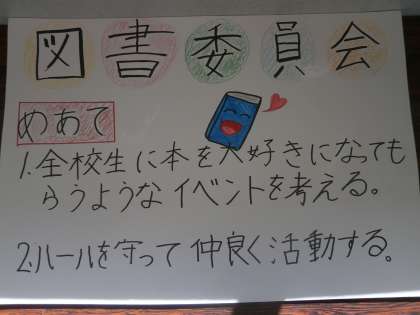 図書委員会
めあて
1.全校生に本を大好きになっても
らうようなイベントを考える。
2.ルールを守って仲良く活動する。